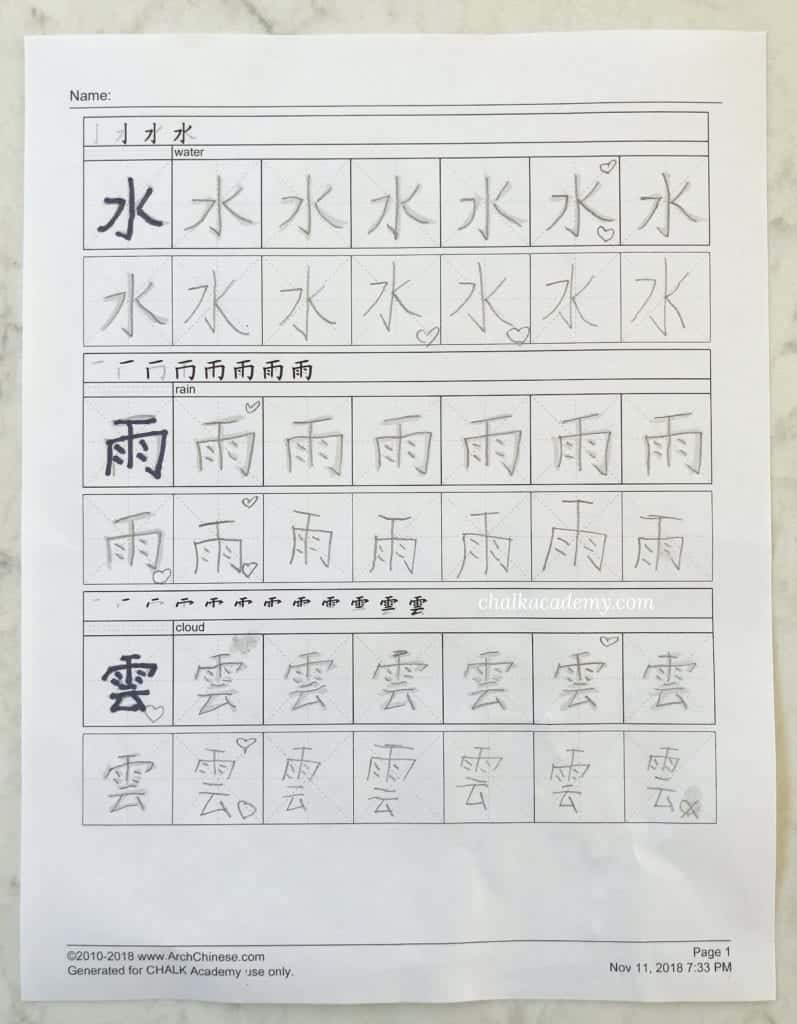 Name:
亅 水 水 水
water
水 水 水 水 水 水 水
水 水 水 水 水 水 水
一 冂 帀 雨 雨 雨 雨
rain
雨 雨 雨 雨 雨 雨 雨
雨 雨 雨 雨 雨 雨 雨
雲
chalkacademy.com
cloud
雲 雲 雲 雲 雲 雲 雲
雲 雲 雲 雲 雲 雲 雲
©2010-2018 www.ArchChinese.com
Page 1
Generated for CHALK Academy use only.
Nov 11, 2018 7:33 PM